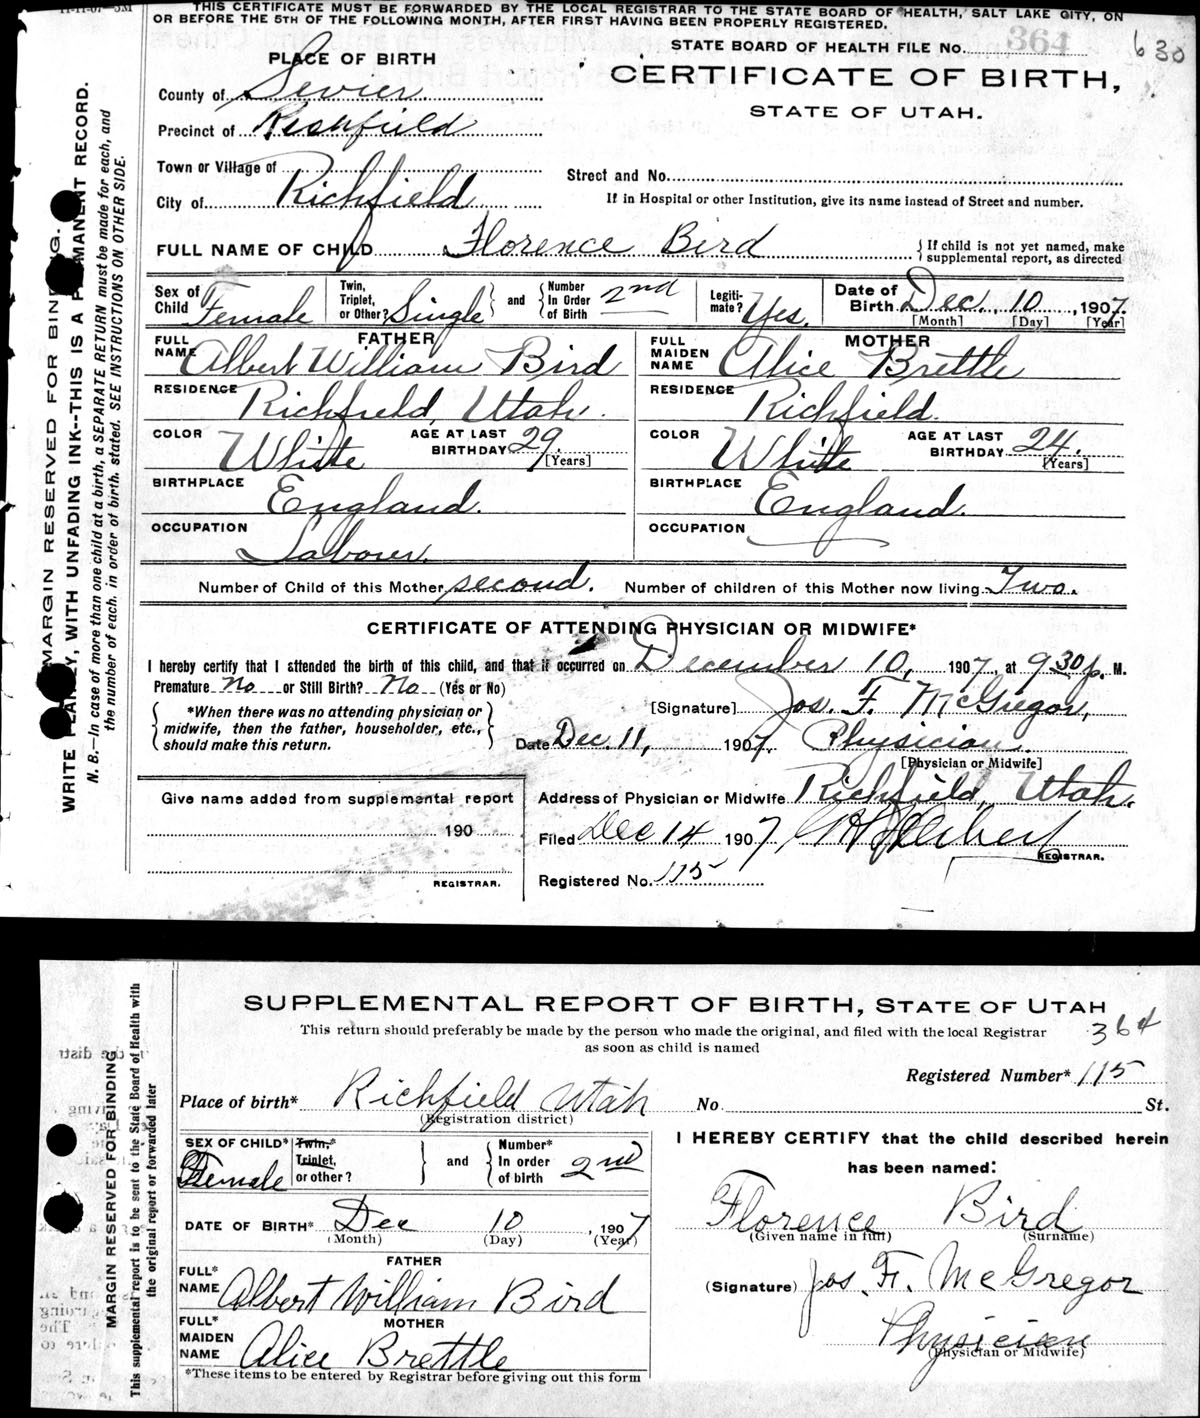 11-11-07—5M
THIS CERTIFICATE MUST BE FORWARDED BY THE LOCAL REGISTRAR TO THE STATE BOARD OF HEALTH, SALT LAKE CITY, ON
OR BEFORE THE 5TH OF THE FOLLOWING MONTH, AFTER FIRST HAVING BEEN PROPERLY REGISTERED.
STATE BOARD OF HEALTH FILE No. 364
630
PLACE OF BIRTH
CERTIFICATE OF BIRTH,
STATE OF UTAH.
County of Sevier
Precinct of Richfield
Town or Village of
Street and No.
City of Richfield
If in Hospital or other Institution, give its name instead of Street and number.
FULL NAME OF CHILD Florence Bird
{ If child is not yet named, make supplemental report, as directed
Sex of Child Female
Twin, Triplet, or Other? Single } and { Number In Order of Birth 2nd
Legiti-mate? Yes.
Date of Birth Dec. 10, 1907.
[Month] [Day] [Year]
FATHER
FULL NAME Albert William Bird
RESIDENCE Richfield, Utah.
COLOR White AGE AT LAST BIRTHDAY 29 [Years]
BIRTHPLACE England.
OCCUPATION Laborer.
MOTHER
FULL MAIDEN NAME Alice Brettle
RESIDENCE Richfield.
COLOR White AGE AT LAST BIRTHDAY 24. [Years]
BIRTHPLACE England.
OCCUPATION
Number of Child of this Mother second. Number of children of this Mother now living Two.
CERTIFICATE OF ATTENDING PHYSICIAN OR MIDWIFE*
I hereby certify that I attended the birth of this child, and that it occurred on December 10, 1907, at 9 30 p. M.
Premature No or Still Birth? No (Yes or No)
{ *When there was no attending physician or midwife, then the father, householder, etc., should make this return. }
[Signature] Jos. F. McGregor,
Date Dec. 11, 1907. Physician.
[Physician or Midwife]
Give name added from supplemental report
190
REGISTRAR.
Address of Physician or Midwife Richfield, Utah.
Filed Dec 14 1907,
REGISTRAR.
Registered No. 115
MARGIN RESERVED FOR BINDING.
WRITE PLAINLY, WITH UNFADING INK--THIS IS A PERMANENT RECORD.
N. B.—In case of more than one child at a birth, a SEPARATE RETURN must be made for each, and
the number of each, in order of birth, stated. SEE INSTRUCTIONS ON OTHER SIDE.
SUPPLEMENTAL REPORT OF BIRTH, STATE OF UTAH
This return should preferably be made by the person who made the original, and filed with the local Registrar
as soon as child is named
364
Registered Number* 115
Place of birth* Richfield Utah No. St.
(Registration district)
SEX OF CHILD* Female
Twin,* Triplet, or other? } and { Number* In order of birth 2nd
DATE OF BIRTH* Dec 10, 1907
(Month) (Day) (Year)
FATHER
FULL* NAME Albert William Bird
MOTHER
FULL* MAIDEN NAME Alice Brettle
*These items to be entered by Registrar before giving out this form
I HEREBY CERTIFY that the child described herein
has been named:
Florence Bird
(Given name in full) (Surname)
(Signature) Jos. F. McGregor
Physician
(Physician or Midwife)
MARGIN RESERVED FOR BINDING
This supplemental report is to be sent to the State Board of Health with
the original report or forwarded later